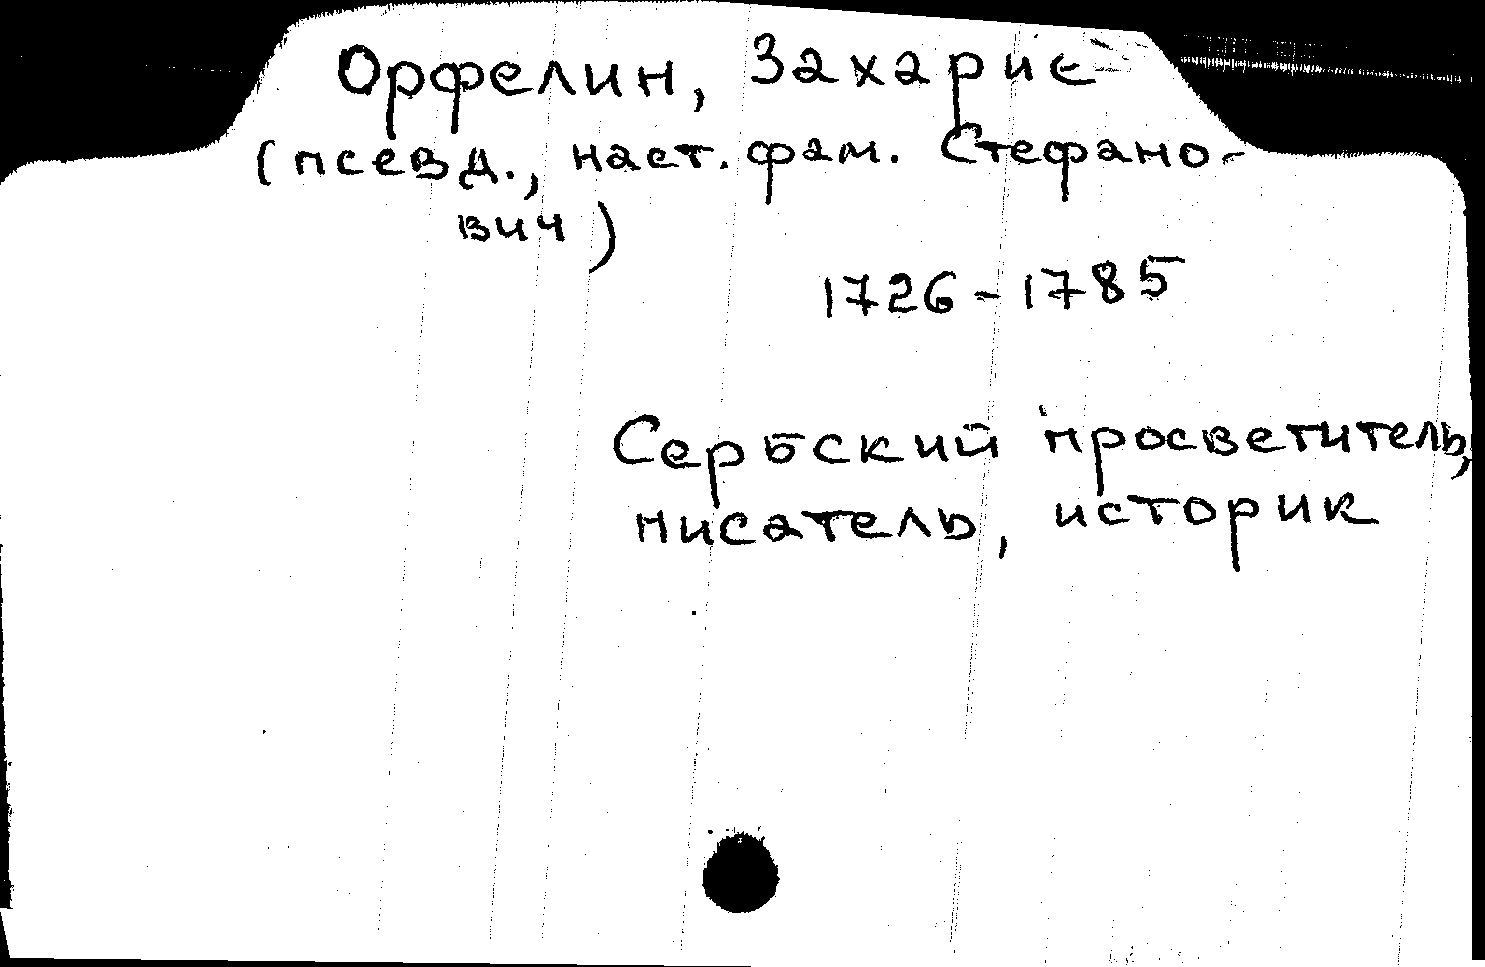 Орфелин, Захарие
(псевд., наст. фам. Стефано-
вич)
1726-1785
Сербский просветитель,
писатель, историк